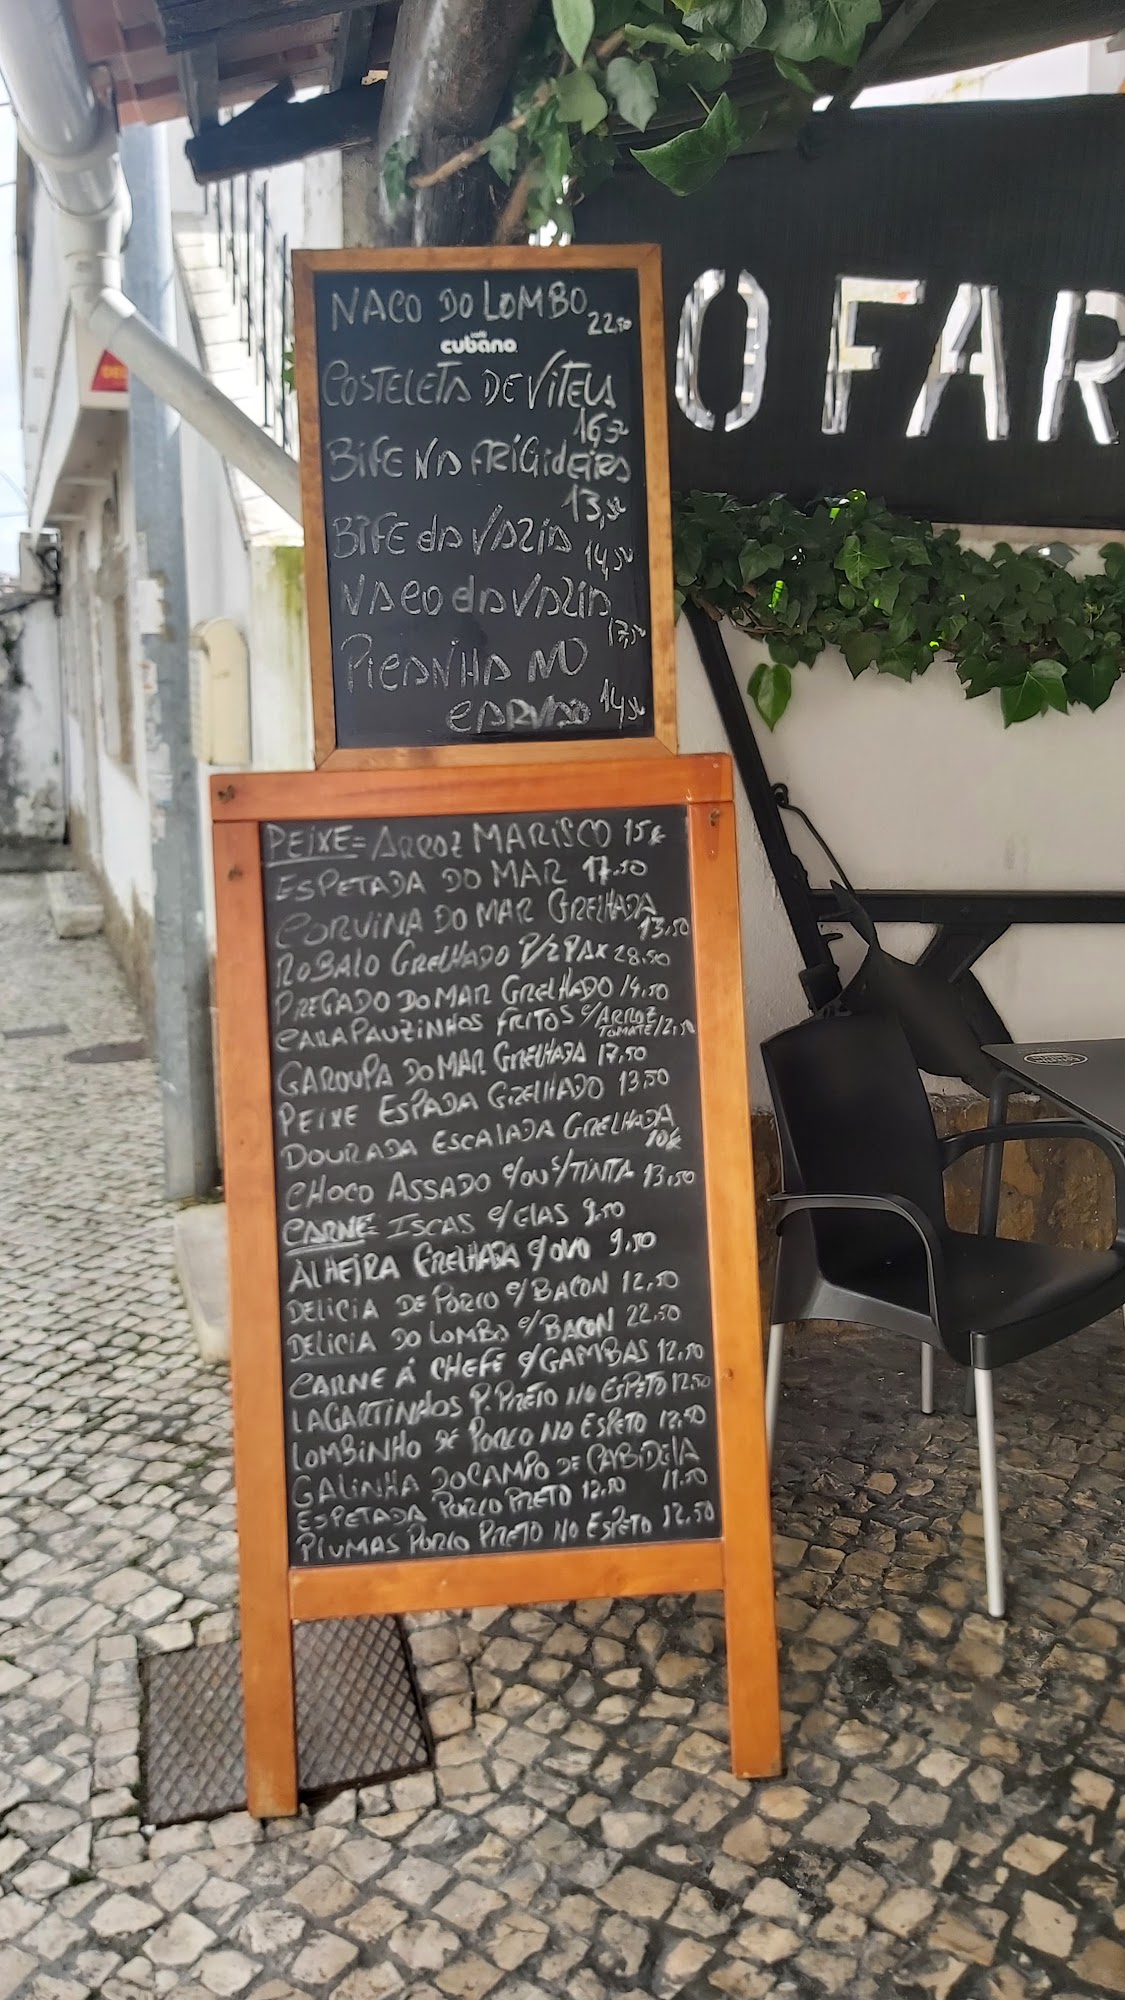 NACO DO LOMBO 22.50
café
cubano
COSTELETA DE VITELA
16,50
BIFE NA FRIGIDEIRA
13,50
BIFE DA VAZIA
14,50
NACO DA VAZIA
17,50
PICANHA NO
CARVAO 14,50
O FAR
PEIXE= ARROZ MARISCO 15€
ESPETADA DO MAR 17.50
CORVINA DO MAR GRELHADA
13,50
ROBALO GRELHADO P/2 PAX 28.50
PREGADO DO MAR GRELHADO 14.50
CARAPAUZINHOS FRITOS C/ARROZ
TOMATE 12.50
GAROUPA DO MAR GRELHADA 17.50
PEIXE ESPADA GRELHADO 13.50
DOURADA ESCALADA GRELHADA
10€
CHOCO ASSADO C/OU S/TINTA 13,50
CARNE ISCAS C/ELAS 9.50
ALHEIRA GRELHADA C/OVO 9,50
DELICIA DE PORCO C/BACON 12.50
DELICIA DO LOMBO C/BACON 22.50
CARNE Á CHEFE C/GAMBAS 12.50
LAGARTINHOS P. PRETO NO ESPETO 12.50
LOMBINHO DE PORCO NO ESPETO 12.50
GALINHA DO CAMPO DE CABIDELA
11.50
ESPETADA PORCO PRETO 12.50
PLUMAS PORCO PRETO NO ESPETO 12.50